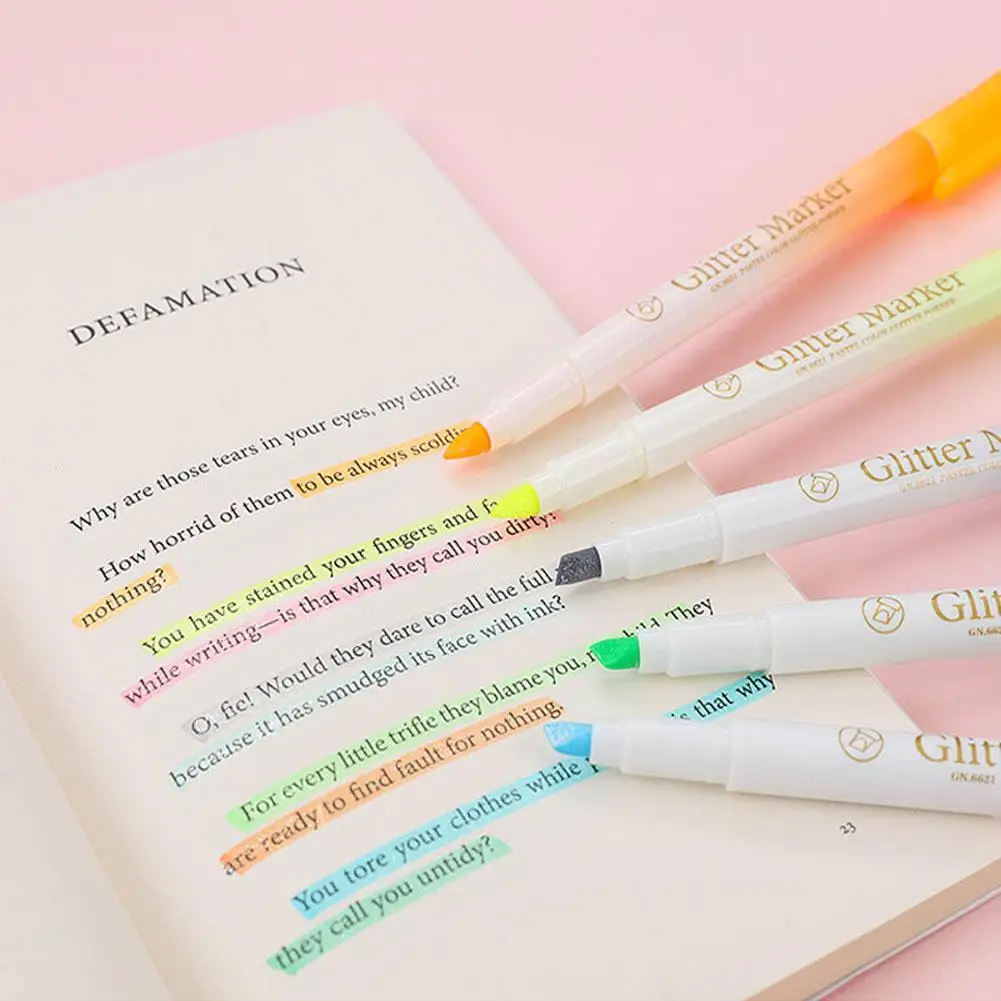 DEFAMATION
Why are those tears in your eyes, my child?
How horrid of them to be always scoldin
nothing?
You have stained your fingers and fa
while writing—is that why they call you dirty?
O, fie! Would they dare to call the full
because it has smudged its face with ink?
For every little trifle they blame you, my child. They
are ready to find fault for nothing.
You tore your clothes while is that why
they call you untidy?
23
Glitter Marker
GN.6621 PASTEL COLOR GLITTER POWDER
Glitter Marker
GN.6621 PASTEL COLOR GLITTER POWDER
Glitter Marker
GN.6621 PASTEL COLOR
Glit
GN.662
Glitt
GN.6621